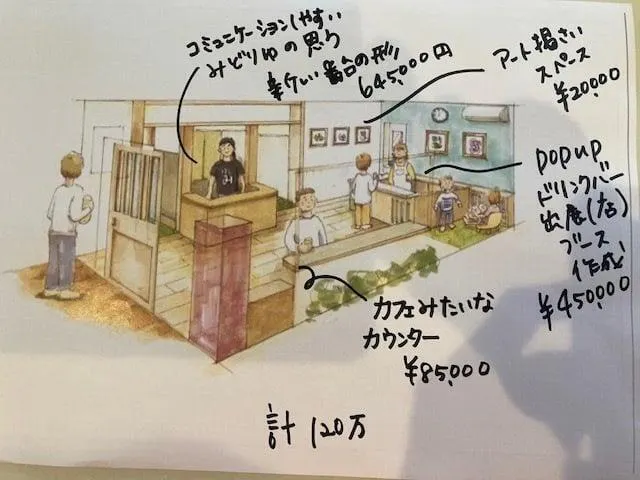 コミュニケーションしやすい
みどりゆの思う
新しい番台の形
645,000円
アート掲さい
スペース
¥20,000
popup
ドリンクバー
(店)
ブース
作成
¥450,000
カフェみたいな
カウンター
¥85,000
計 120万